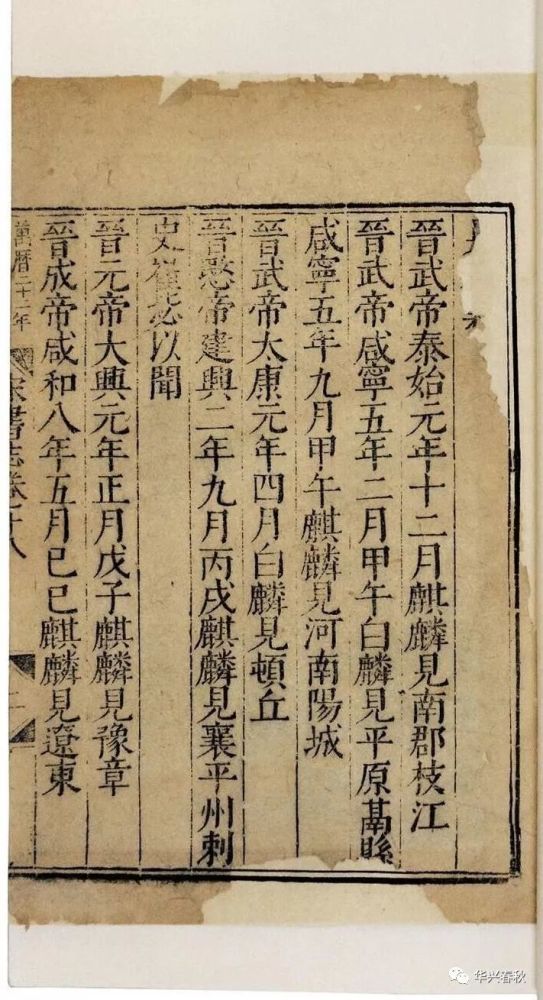 晉武帝泰始元年十二月麒麟見南郡枝江
晉武帝咸寧五年二月甲午白麟見平原鬲縣
咸寧五年九月甲午麒麟見河南陽城
晉武帝太康元年四月白麟見頓丘
晉愍帝建興二年九月丙戌麒麟見襄平州刺
史崔毖以聞
晉元帝大興元年正月戊子麒麟見豫章
晉成帝咸和八年五月己巳麒麟見遼東
萬曆二十二年
宋書志卷十八
二
华兴春秋